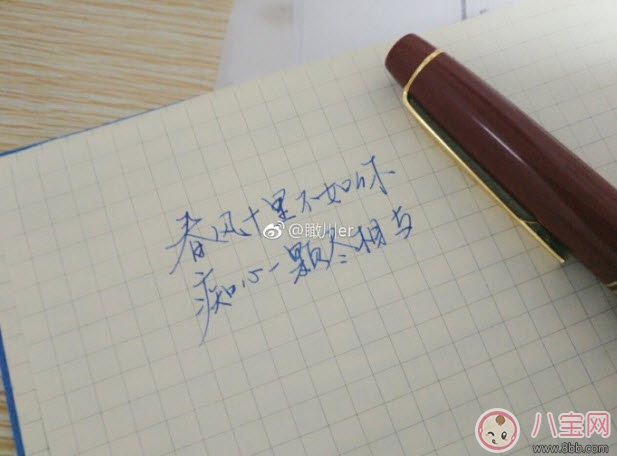 春风十里不如你
@瞰川er
痴心一颗尽相与
八宝网
www.8bb.com